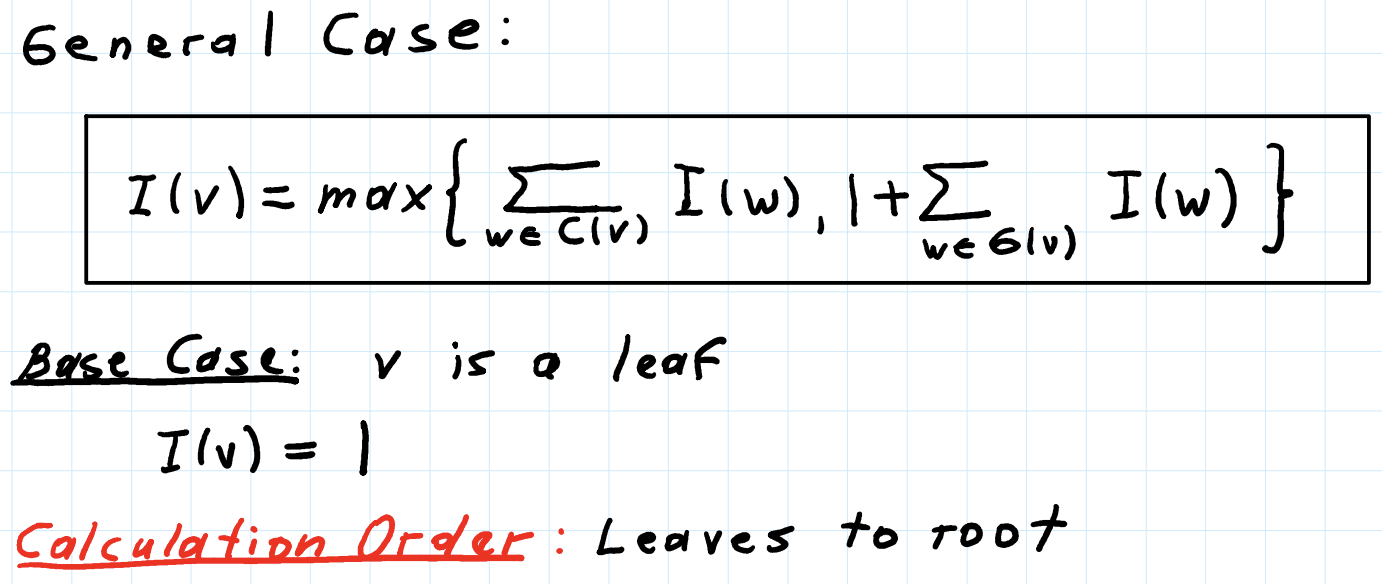 General Case:
I(v) = max{ ∑_{w∈C(v)} I(w), 1+∑_{w∈G(v)} I(w) }
Base Case: v is a leaf
I(v) = 1
Calculation Order: Leaves to root